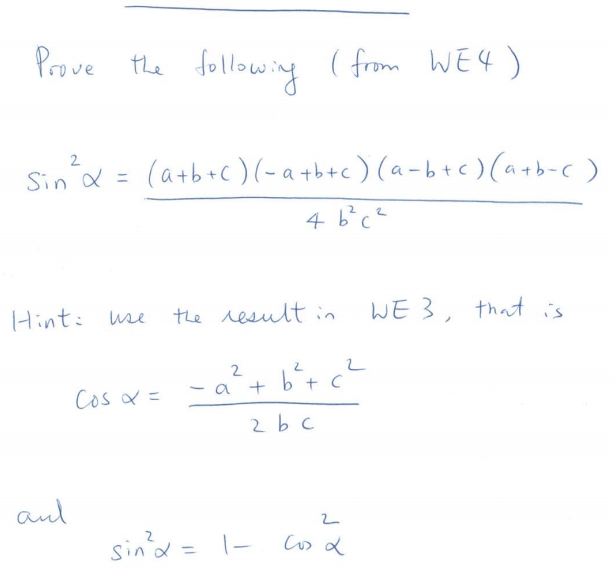 Prove the following (from WE4)
sin²α = (a+b+c)(-a+b+c)(a-b+c)(a+b-c)
4 b²c²
Hint: use the result in WE 3, that is
cos α = -a² + b² + c²
2 b c
and
sin²α = 1 - cos²α